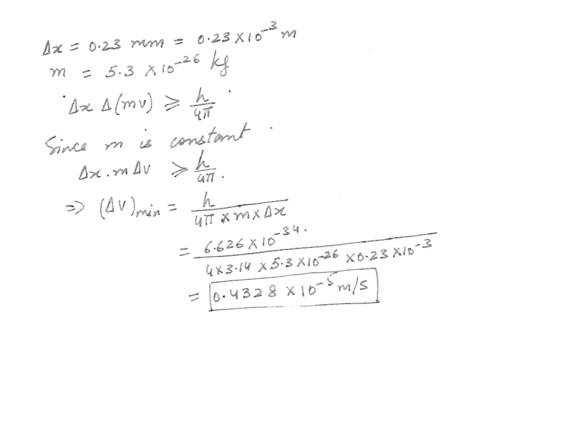 Δx = 0.23 mm = 0.23 × 10⁻³ m
m = 5.3 × 10⁻²⁶ kg
Δx Δ(mv) ⩾ h/4π
Since m is constant.
Δx. m Δv ⩾ h/4π.
⇒ (Δv)min = h / 4π × m × Δx
= 6.626 × 10⁻³⁴. / 4×3.14 × 5.3 × 10⁻²⁶ × 0.23 × 10⁻³
= 0.4328 × 10⁻⁵ m/s